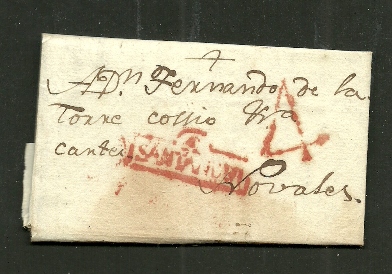 A Dn. Fernando de la
Torre cossio
4
cante
SANTANDER
Novales.